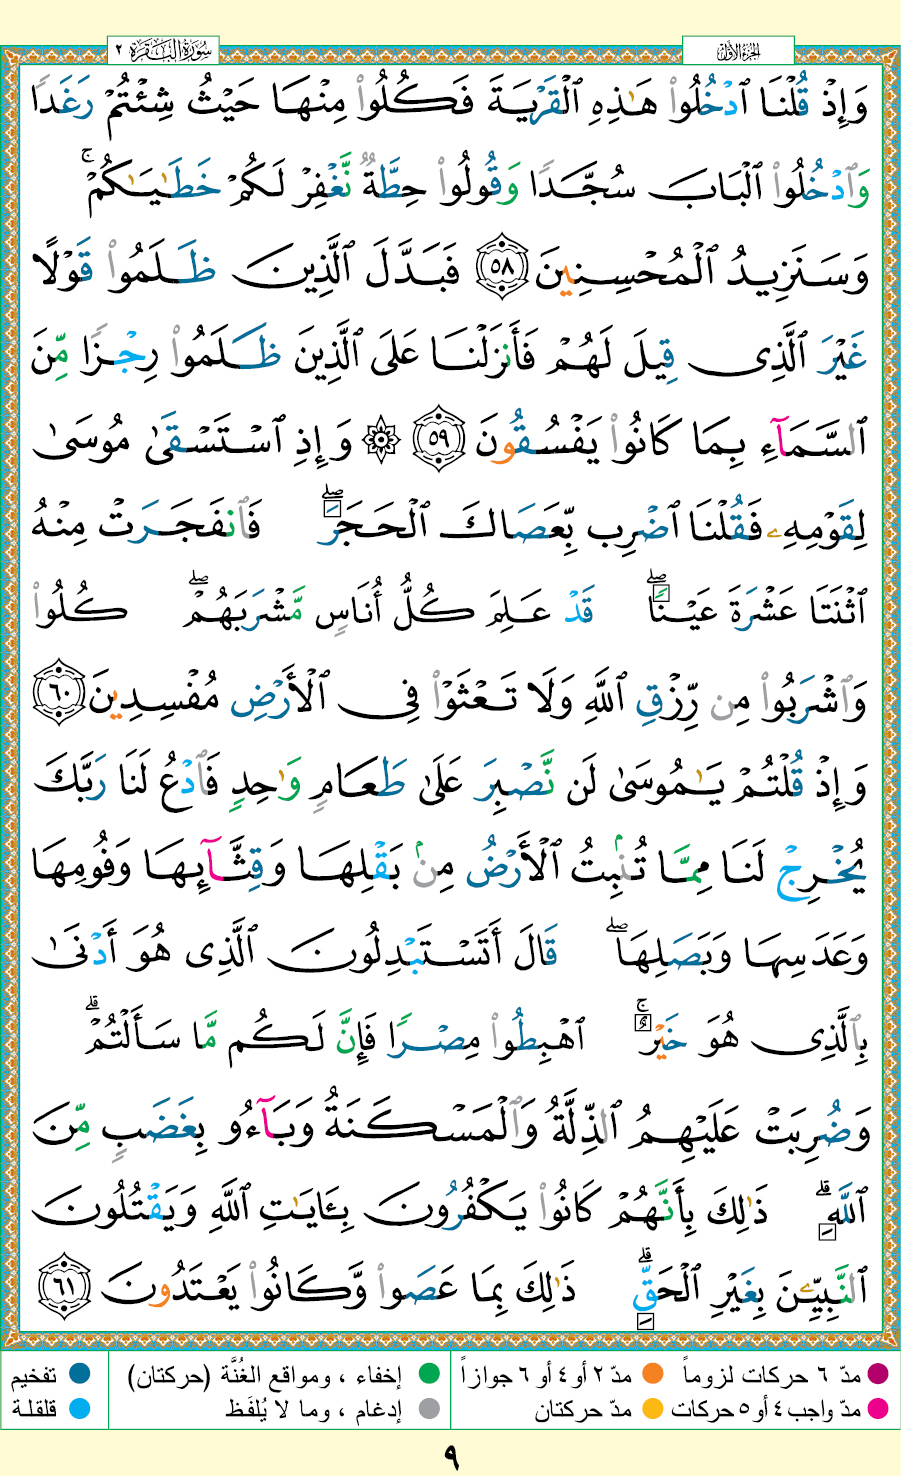 سُورَةُ البَقَرَةِ ٢
الجُزءُ الأوّل
وَإِذْ قُلْنَا ٱدْخُلُوا۟ هَـٰذِهِ ٱلْقَرْيَةَ فَكُلُوا۟ مِنْهَا حَيْثُ شِئْتُمْ رَغَدًا
وَٱدْخُلُوا۟ ٱلْبَابَ سُجَّدًا وَقُولُوا۟ حِطَّةٌ نَّغْفِرْ لَكُمْ خَطَـٰيَـٰكُمْ ۚ
وَسَنَزِيدُ ٱلْمُحْسِنِينَ ٥٨ فَبَدَّلَ ٱلَّذِينَ ظَلَمُوا۟ قَوْلًا
غَيْرَ ٱلَّذِى قِيلَ لَهُمْ فَأَنزَلْنَا عَلَى ٱلَّذِينَ ظَلَمُوا۟ رِجْزًا مِّنَ
ٱلسَّمَآءِ بِمَا كَانُوا۟ يَفْسُقُونَ ٥٩ ۞ وَإِذِ ٱسْتَسْقَىٰ مُوسَىٰ
لِقَوْمِهِۦ فَقُلْنَا ٱضْرِب بِّعَصَاكَ ٱلْحَجَرَ ۖ فَٱنفَجَرَتْ مِنْهُ
ٱثْنَتَا عَشْرَةَ عَيْنًا ۖ قَدْ عَلِمَ كُلُّ أُنَاسٍ مَّشْرَبَهُمْ ۖ كُلُوا۟
وَٱشْرَبُوا۟ مِن رِّزْقِ ٱللَّهِ وَلَا تَعْثَوْا۟ فِى ٱلْأَرْضِ مُفْسِدِينَ ٦٠
وَإِذْ قُلْتُمْ يَـٰمُوسَىٰ لَن نَّصْبِرَ عَلَىٰ طَعَامٍ وَٰحِدٍ فَٱدْعُ لَنَا رَبَّكَ
يُخْرِجْ لَنَا مِمَّا تُنۢبِتُ ٱلْأَرْضُ مِنۢ بَقْلِهَا وَقِثَّآئِهَا وَفُومِهَا
وَعَدَسِهَا وَبَصَلِهَا ۖ قَالَ أَتَسْتَبْدِلُونَ ٱلَّذِى هُوَ أَدْنَىٰ
بِٱلَّذِى هُوَ خَيْرٌ ۚ ٱهْبِطُوا۟ مِصْرًا فَإِنَّ لَكُم مَّا سَأَلْتُمْ ۗ
وَضُرِبَتْ عَلَيْهِمُ ٱلذِّلَّةُ وَٱلْمَسْكَنَةُ وَبَآءُو بِغَضَبٍ مِّنَ
ٱللَّهِ ۗ ذَٰلِكَ بِأَنَّهُمْ كَانُوا۟ يَكْفُرُونَ بِـَٔايَـٰتِ ٱللَّهِ وَيَقْتُلُونَ
ٱلنَّبِيِّـۧنَ بِغَيْرِ ٱلْحَقِّ ۗ ذَٰلِكَ بِمَا عَصَوا۟ وَّكَانُوا۟ يَعْتَدُونَ ٦١
مدّ ٦ حركات لزوماً مدّ ٢ أو ٤ أو ٦ جوازاً إخفاء ، ومواقع الغُنَّة (حركتان) تفخيم
مدّ واجب ٤ أو ٥ حركات مدّ حركتان إدغام ، وما لا يُلفَظ قلقلة
٩